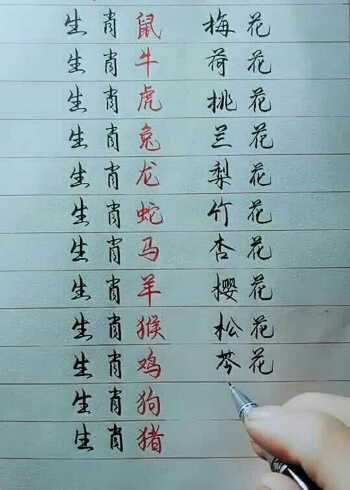 生肖鼠 梅花
生肖牛 荷花
生肖虎 桃花
生肖兔 兰花
生肖龙 梨花
生肖蛇 竹花
生肖马 杏花
生肖羊 樱花
生肖猴 松花
生肖鸡 芩花
生肖狗
生肖猪